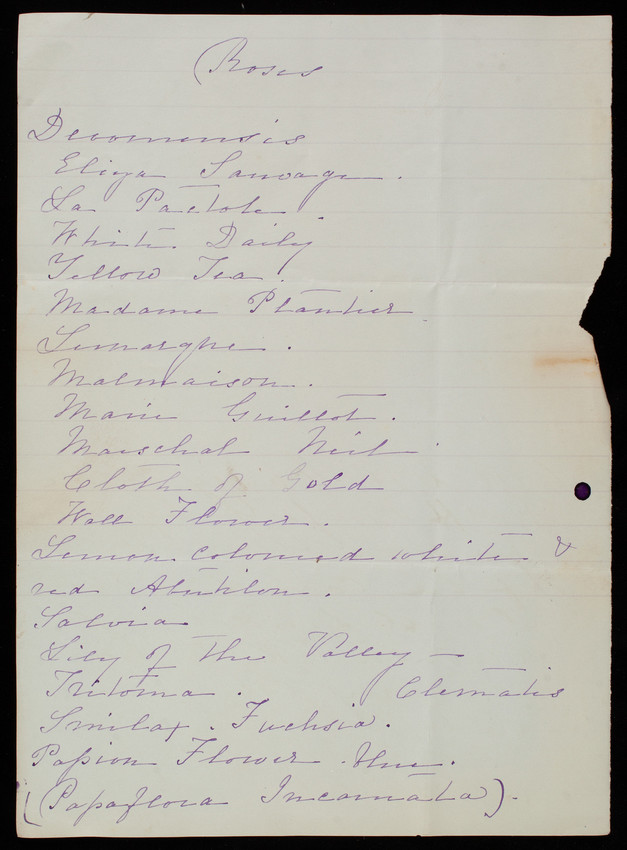 Roses
Devonensis
Eliza Sauvage.
La Pactole.
White Daily
Yellow Tea.
Madame Plantier
Lemarque.
Malmaison.
Marie Guillot.
Mareschal Neil.
Cloth of Gold
Wall Flower.
Lemon coloured white &
red Abutilon.
Salvia
Lily of the Valley —
Tritoma. Clematis
Smilax. Fuchsia.
Passion Flower blue.
(Papaflora Incarnata).